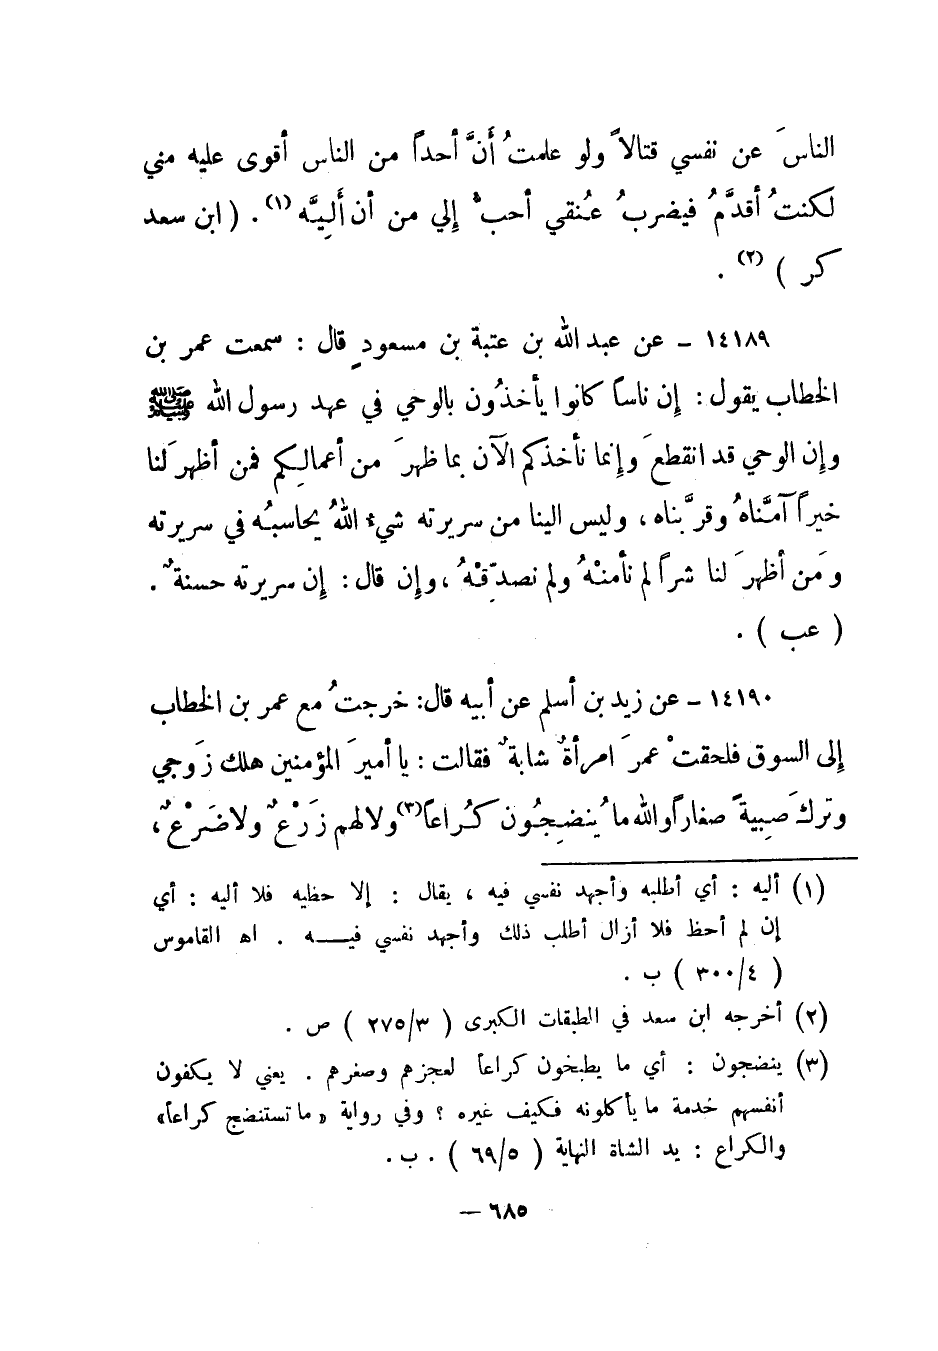 الناسَ عن نفسي قتالاً ولو علمتُ أَنَّ أحداً من الناس أقوى عليه مني
لكنتُ أقدَّمُ فيضربُ عُنقي أحبُّ إِلي من أن أَلِيَّه (١) . ( ابن سعد
كر ) (٢) .
١٤١٨٩ ـ عن عبد الله بن عتبة بن مسعودٍ قال : سمعت عمر بن
الخطاب يقول : إِن ناساً كانوا يأخذُون بالوحي في عهد رسول الله ﷺ
وإِن الوحي قد انقطعَ وإِنما نأخذكم الآن بما ظهرَ من أعمالِكم فمن أظهرَ لنا
خيراً آمنَّاهُ وقرَّبناه ، وليس الينا من سريرته شيءٌ اللهُ يحاسبُه في سريرته
ومَن أظهرَ لنا شراً لم نأمنْهُ ولم نصدِّقْهُ ، وإِن قال : إِن سريرته حسنةٌ .
( عب ) .
١٤١٩٠ ـ عن زيد بن أسلم عن أبيه قال : خرجتُ مع عمر بن الخطاب
إِلى السوق فلحقتْ عمرَ امرأةٌ شابةٌ فقالت : يا أميرَ المؤمنين هلك زَوجي
وتركَ صِبيةً صغاراً والله ما يُنضِجُون كُراعاً(٣) ولا لهم زَرْعٌ ولا ضَرْعٌ ،
(١) أليه : أي أطلبه وأجهد نفسي فيه ، يقال : إلا حظيه فلا أليه : أي
إن لم أحظ فلا أزال أطلب ذلك وأجهد نفسي فيـــه . اه القاموس
( ٣٠٠/٤ ) ب .
(٢) أخرجه ابن سعد في الطبقات الكبرى ( ٢٧٥/٣ ) ص .
(٣) ينضجون : أي ما يطبخون كراعاً لعجزهم وصغرهم . يعني لا يكفون
أنفسهم خدمة ما يأكلونه فكيف غيره ؟ وفي رواية « ما تستنضج كراعاً »
والكراع : يد الشاة النهاية ( ٦٩/٥ ) . ب .
٦٨٥ —